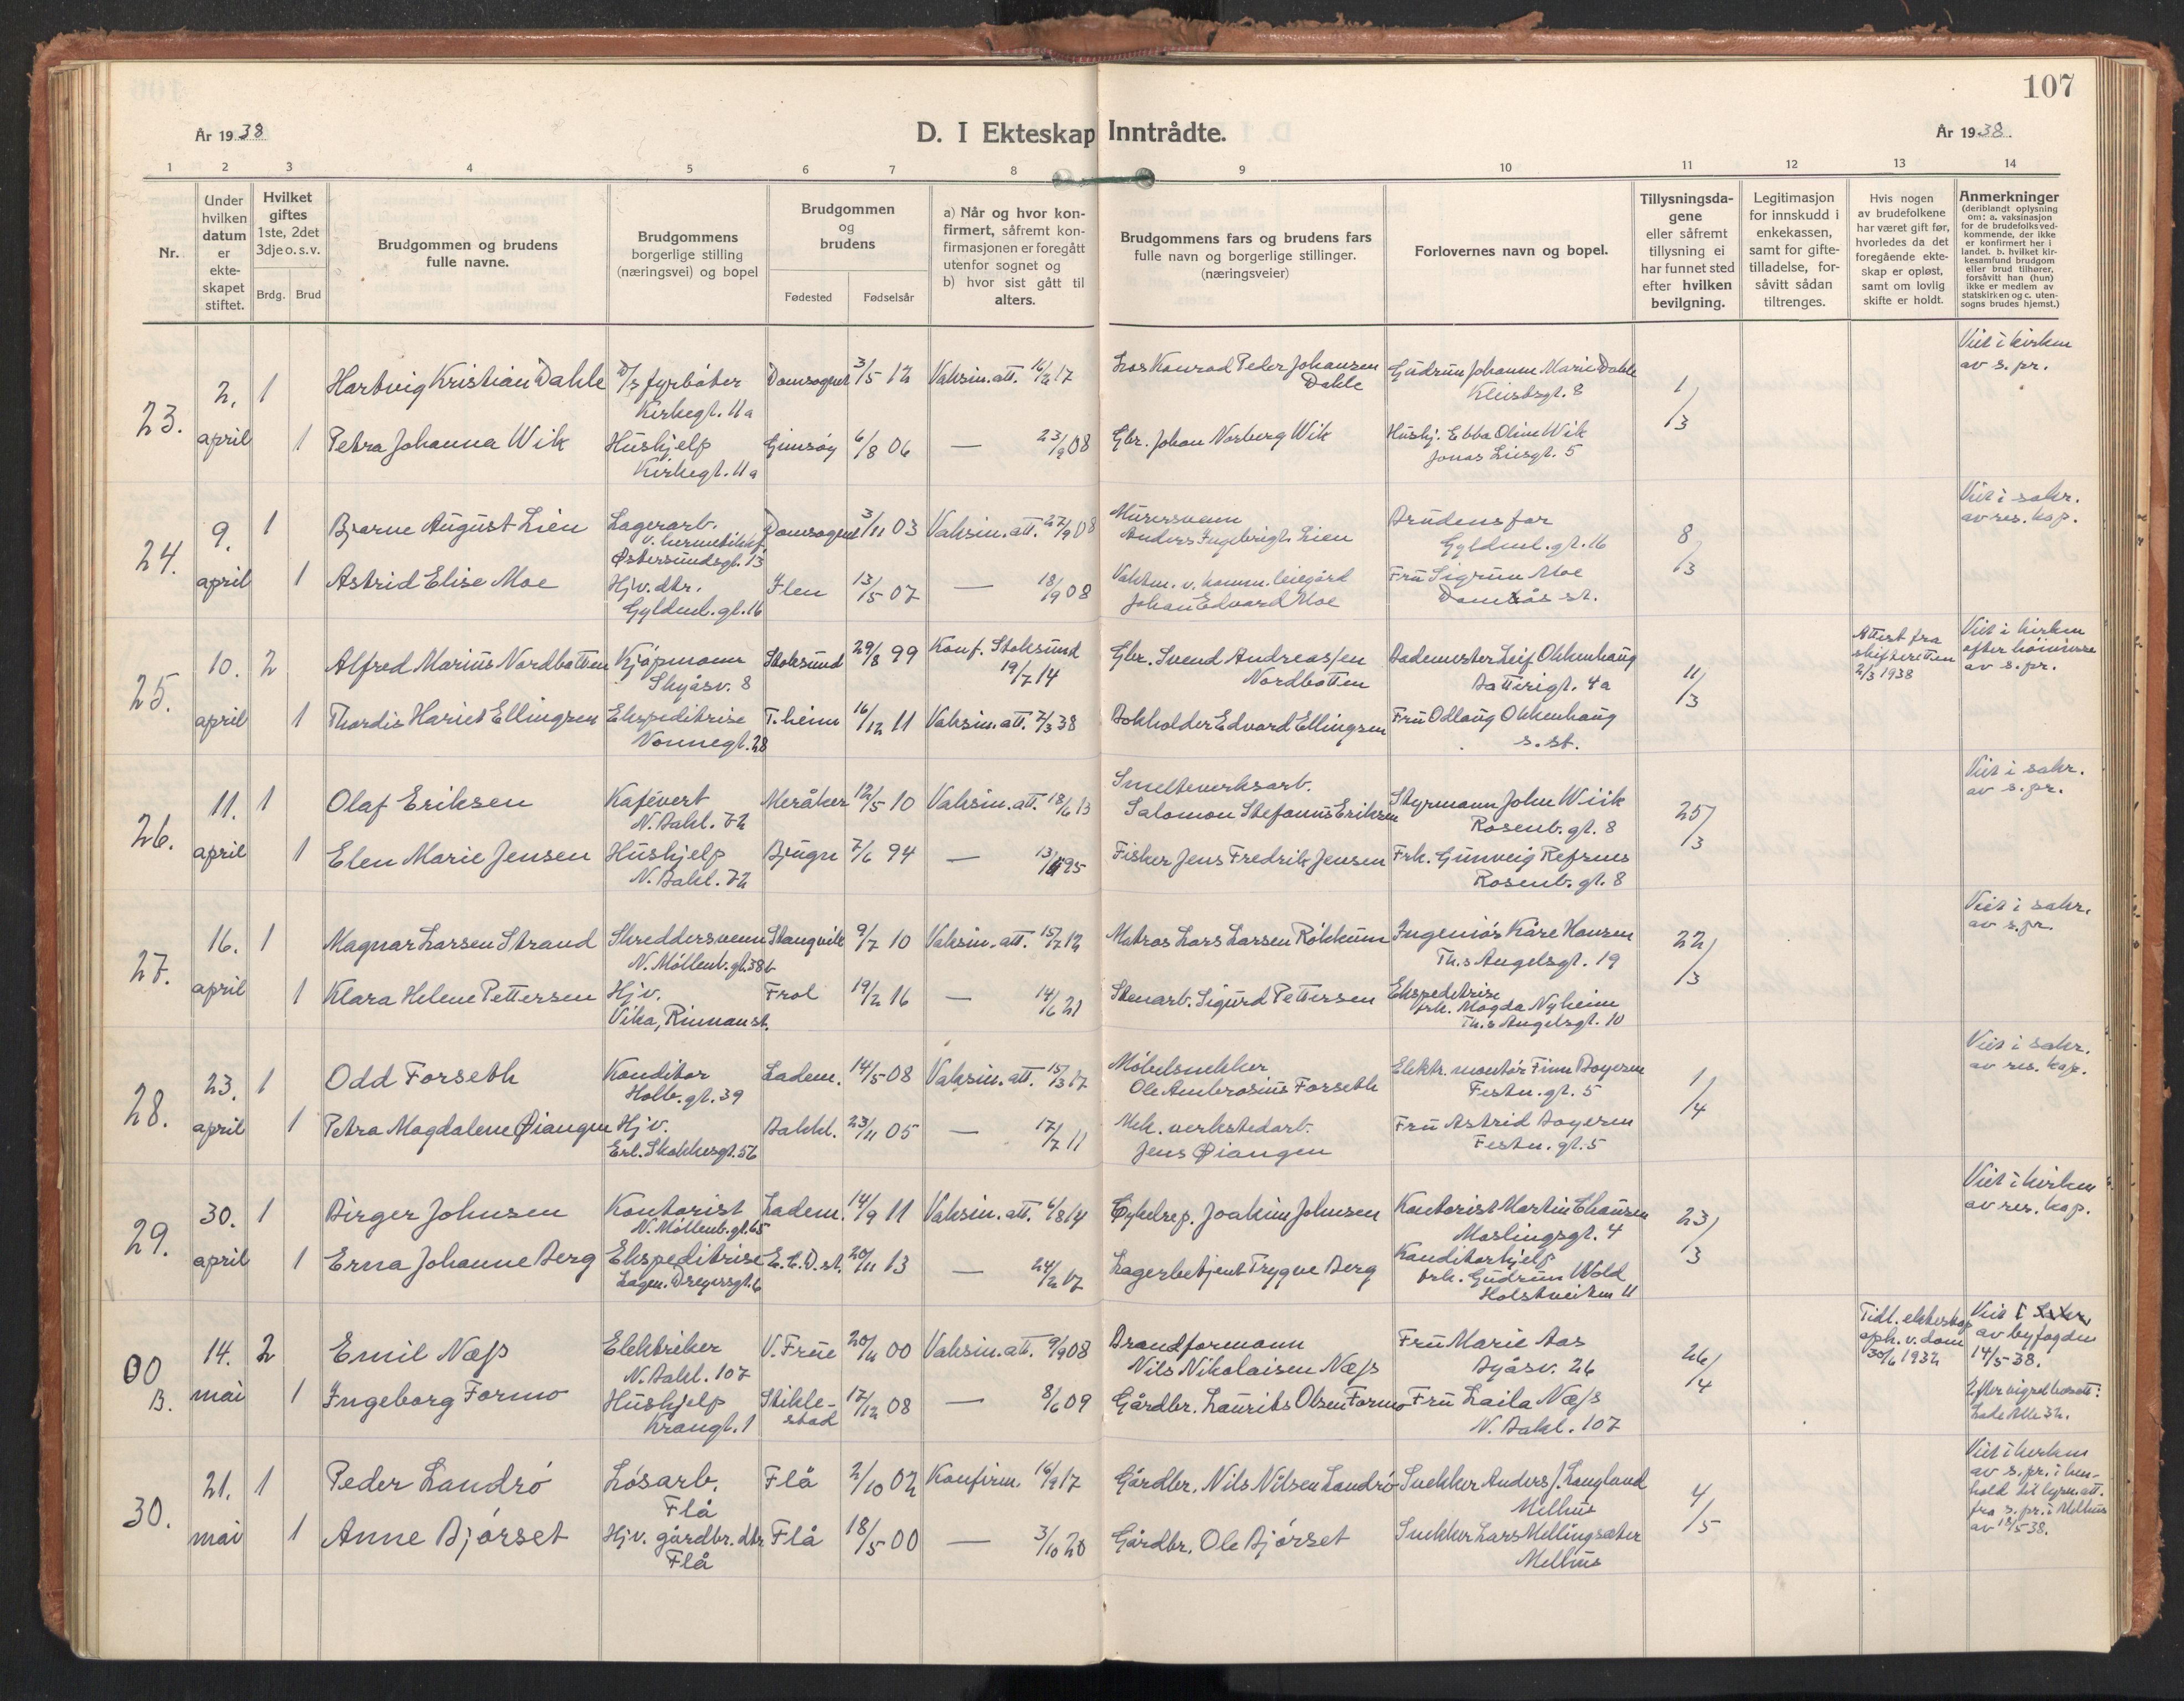 107
År 1938
D. I Ekteskap Inntrådte.
År 1938.
1 2 3 4 5 6 7 8 9 10 11 12 13 14
Nr.
Under hvilken datum er ekteskapet stiftet.
Hvilket giftes 1ste, 2det 3dje o. s. v.
Brdg. Brud
Brudgommen og brudens fulle navne.
Brudgommens borgerlige stilling (næringsvei) og bopel
Brudgommen og brudens
Fødested Fødselsår
a) Når og hvor konfirmert, såfremt konfirmasjonen er foregått utenfor sognet og b) hvor sist gått til alters.
Brudgommens fars og brudens fars fulle navn og borgerlige stillinger. (næringsveier)
Forlovernes navn og bopel.
Tillysningsdagene eller såfremt tillysning ei har funnet sted efter hvilken bevilgning.
Legitimasjon for innskudd i enkekassen, samt for giftetilladelse, forsåvitt sådan tiltrenges.
Hvis nogen av brudefolkene har været gift før, hvorledes da det foregående ekteskap er opløst, samt om lovlig skifte er holdt.
Anmerkninger (deriblandt oplysning om: a. vaksinasjon for de brudefolks vedkommende, der ikke er konfirmert her i landet. b. hvilket kirkesamfund brudgom eller brud tilhører, forsåvitt han (hun) ikke er medlem av statskirken og c. utensogns brudes hjemst.)
23. 2. april 1 Hartvig Kristian Dahle D/S fyrbøter Kirkegt. 11a Domsognet 3/5 12 Vaksin. att. 17 Los Konrad Peder Johansen Dahle Gudrun Johanne Marie Dahle 8 1/3 Viet i kirken av s. pr.
1 Petra Johanna Wik Hushjelp Kirkegt. 11a Gimsøy 6/8 06 — 23/9 08 Gbr. Johan Norberg Wik Hushj. Ebba Oline Wik Jonas Liesgt. 5
24. 9. april 1 Bjarne August Lien Lagerarb. v. hermetikkf. Østersundsgt. 13 Domsognet 3/11 03 Vaksin. att. 27/9 08 Murersvenn Anders Ingebrigt. Lien Brudens far Gyldenl. gt. 16 8/3 Viet i sakr. av res. kap.
1 Astrid Elise Moe Hjv. dtr. Gyldenl. gt. 16 Ilen 13/5 07 — 18/9 08 Vaktm. v. komm. leiegård Johan Edvard Moe Fru Sigrun Moe Dombås st.
25. 10. april 2 Alfred Marius Nordbotten Kjøpmann Skyåsv. 8 Stoksund 29/8 99 Konf. Stoksund 19/7 14 Gbr. Svend Andreassen Nordbotten Bademester Leif Okkenhaug Batterigt. 4a 11/3 Attest fra skifteretten 2/3 1938 Viet i kirken efter høimesse av s. pr.
1 Thordis Hariet Ellingsen Ekspeditrise Vonnegt. 28 T.heim 16/12 11 Vaksin. att. 7/3 38 Bokholder Edvard Ellingsen Fru Odlaug Okkenhaug s. st.
26. 11. april 1 Olaf Eriksen Kafévert N. Bakl. 72 Meråker 12/5 10 Vaksin. att. 18/6 13 Smelteverksarb. Salomon Stefanus Eriksen Styrmann John Wiik Rosenb. gt. 8 25/3 Viet i sakr. av s. pr.
1 Elen Marie Jensen Hushjelp N. Bakl. 72 Bjugn 7/6 94 — 95 Fisker Jens Fredrik Jensen Frk. Gunveig Refsnes Rosenb. gt. 8
27. 16. april 1 Magnar Larsen Strand Skreddersvenn N. Møllenb. gt. 38b Stangvik 9/7 10 Vaksin. att. 15/7 12 Matros Lars Larsen Røkkum Ingeniør Kåre Hansen Th.s Angelsgt. 19 22/3 Viet i sakr. av s. pr.
1 Klara Helene Pettersen Hjv. Vika, Rinnan st. Frol 19/2 16 — 14/6 21 Stenarb. Sigurd Pettersen Ekspeditrise frk. Magda Nyheim Th.s Angelsgt. 10
28. 23. april 1 Odd Forseth Konditor Holb. gt. 39 Ladem. 14/5 08 Vaksin. att. 15/3 17 Møbelsnekker Ole Ambrosius Forseth Elektr. montør Finn Boyesen Festn. gt. 5 1/4 Viet i sakr. av res. kap.
1 Petra Magdalene Øiangen Hjv. Erl. Skakkesgt. 56 Bakkl. 23/11 05 — 17/7 11 Mek. verkstedarb. Jens Øiangen Fru Astrid Boyesen Festn. gt. 5
29. 30. april 1 Birger Johnsen Kontorist N. Møllenb. gt. 65 Ladem. 14/9 11 Vaksin. att. 6/8 14 Sykelrep. Joakim Johnsen Kontorist Martin Moslingsgt. 4 23/3 Viet i kirken av res. kap.
1 Erna Johanne Berg Ekspeditrise Lagm. Dreyersgt. 6 E. C. D. st. 20/11 13 — 24/2 17 Lagerbetjent Trygve Berg Konditorhjelp frk. Gudrun Wold Holstveiten 11
00 B. 14. mai 2 Emil Næss Elektriker N. Bakl. 107 V. Frue 00 Vaksin. att. 9/9 08 Brandformann Nils Nikolaisen Næss Fru Marie Aas Byåsv. 26 26/4 Tidl. ekteskap oph. v. dom 30/6 1932 Viet av byfogden 14/5-38. Efter vigsel bosatt: Lade Alle 32.
1 Ingeborg Formo Hushjelp Krangt. 1 Stiklestad 17/12 08 — 8/6 09 Gårdbr. Laurits Olsen Formo Fru Laila Næss N. Bakl. 107
30. 21. mai 1 Peder Landrø Løsarb. Flå Flå 2/10 02 Konfirm. 16/9 17 Gårdbr. Nils Nilsen Landrø Snekker Anders J. Langland Melhus 4/5 Viet i kirken av s. pr. i henhold til lysn. att. fra s. pr. i Melhus av 18/5 38.
1 Anne Bjørset Hjv. gårdbr. dtr Flå Flå 18/5 00 — 3/10 20 Gårdbr. Ole Bjørset Snekker Lars Mellingsæter Melhus